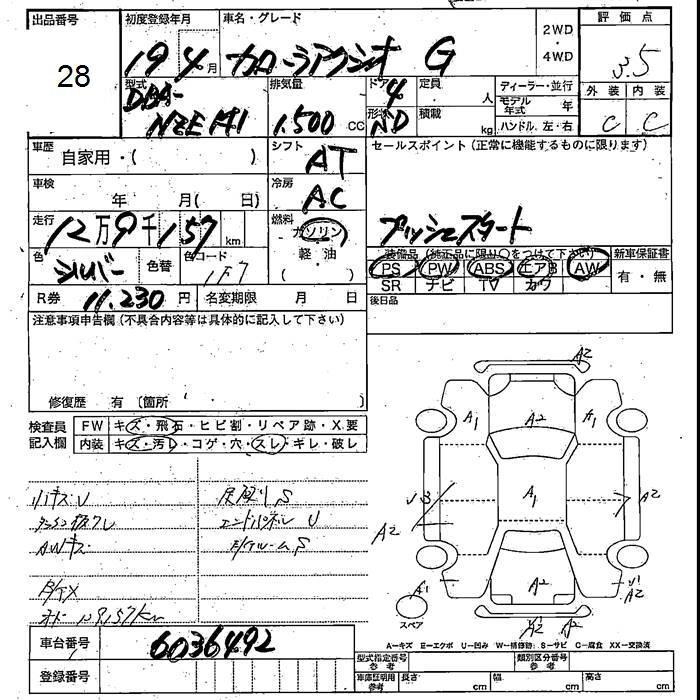 出品番号
28
初度登録年月
19 4月
車名・グレード
カローラアクシオ G
2WD
・
4WD
評価点
3.5
外装 内装
C C
型式
DBA-
NZE141
排気量
1.500 CC
ドア
4
形状
ND
定員
人
積載
kg
ディーラー・並行
モデル年式 年
ハンドル 左・右
車歴
自家用・( )
シフト
AT
セールスポイント(正常に機能するものに限ります)
プッシュスタート
車検
年 月( 日)
冷房
AC
走行
12万9千157 km
燃料
ガソリン
軽・油
( )
色
シルバー
色替
色コード
1F7
R券 11.230 円
名変期限 月 日
装備品(純正品に限り○をつけて下さい)
PS PW ABS エアB AW
SR ナビ TV カワ
新車保証書
有・無
後日品
注意事項申告欄(不具合内容等は具体的に記入して下さい)
修復歴 有 〔箇所 〕
検査員
記入欄
FW キズ・飛石・ヒビ割・リペア跡・X.要
内装 キズ・汚レ・コゲ・穴・スレ・キレ・破レ
AWキズ
エンドパネル U
S
U
S
A2
A1
A2
A1
A1
A2
A2
A2
A1
A2
スペア
A-キズ E-エクボ U-凹み W-補修跡 S-サビ C-腐食 XX-交換済
車台番号
6036492
登録番号
型式指定番号
参考
類別区分番号
参考
車庫証明用
参考
長さ cm
幅 cm
高さ cm